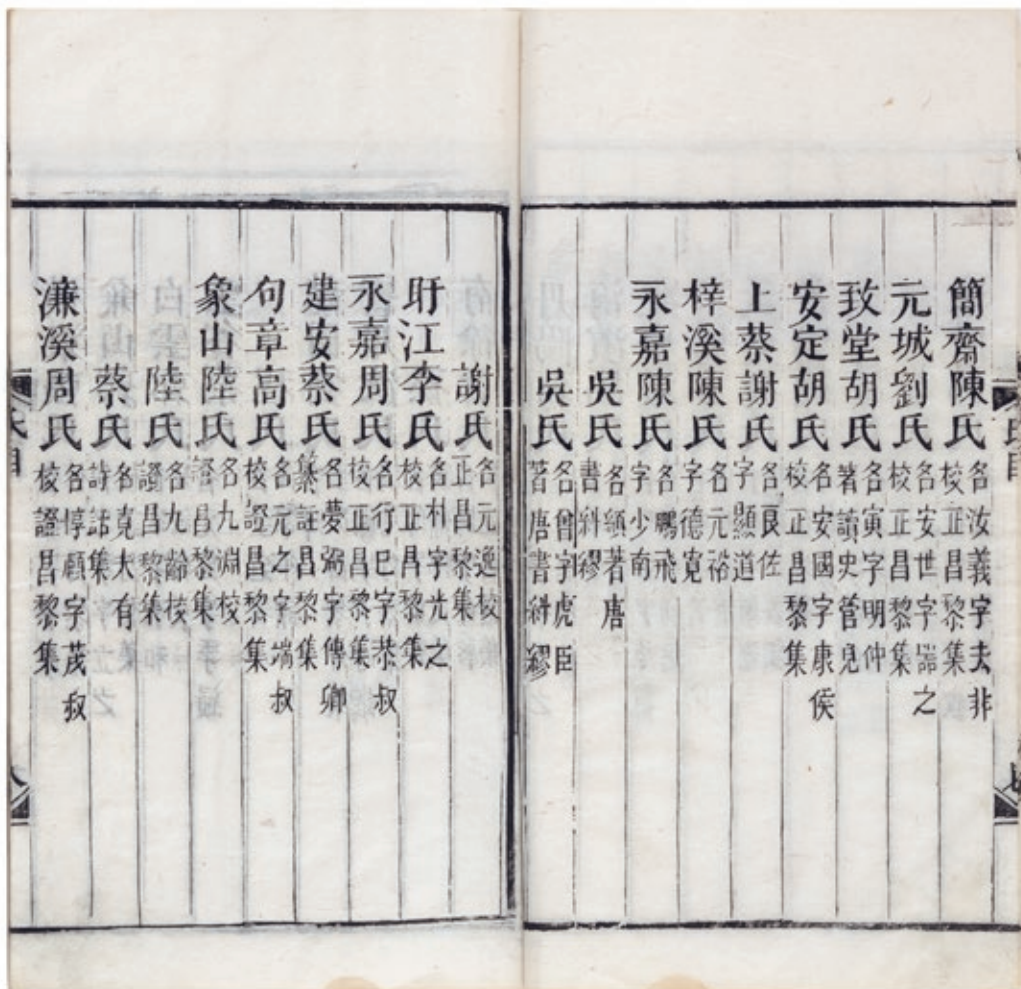 簡齋陳氏 名汝義字去非 校正昌黎集
元城劉氏 名安世字器之 校正昌黎集
致堂胡氏 名寅字明仲 著讀史管見
安定胡氏 名安國字康侯 校正昌黎集
上蔡謝氏 名良佐 字顯道
梓溪陳氏 名元裕 字德寬
永嘉陳氏 名鵬飛 字少南
吳氏 名縝著唐 書糾繆
吳氏 名曾字虎臣 著唐書糾繆
謝氏 名元逸校 正昌黎集
盱江李氏 名朴字先之 校正昌黎集
永嘉周氏 名行巳字恭叔 校正昌黎集
建安蔡氏 名夢弼字傅卿 纂註昌黎集
句章高氏 名元之字端叔 校證昌黎集
象山陸氏 名九淵校 證昌黎集
陸氏 名九齡校 證昌黎集
蔡氏 名克大有 詩話集
濂溪周氏 名惇頤字茂叔 校證昌黎集
氏目
七
氏目
八